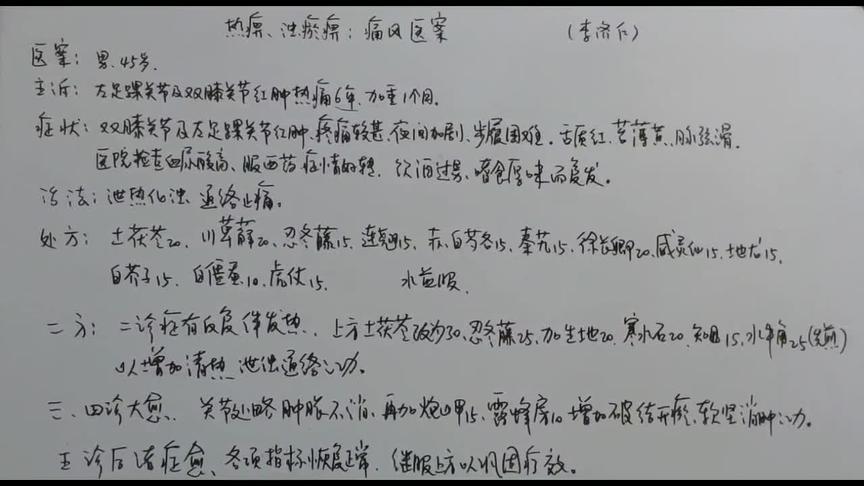 热痹、浊瘀痹：痛风医案 (李济仁)
医案：男、45岁.
主诉：左足踝关节及双膝关节红肿热痛6年、加重1个月.
症状：双膝关节及左足踝关节红肿、疼痛较甚、夜间加剧、步履困难. 舌质红、苔薄黄、脉弦滑.
医院检查血尿酸高、服西药症情好转. 饮酒过多、嗜食厚味而复发。
治法：泄热化浊 通络止痛。
处方：土茯苓20、川萆薢20、忍冬藤15、连翘15、赤、白芍各15、秦艽15、徐长卿20、威灵仙15、地龙15、
白芥子15、白僵蚕10、虎仗15. 水煎服.
二方：二诊症有反复伴发热. 上方土茯苓改为30、忍冬藤25、加生地20、寒水石20、知母15、水牛角25(先煎)
以增加清热泄浊通络之功。
三、四诊大愈、关节处略肿胀不消、再加炮山甲15、露蜂房10 增加破结开瘀、软坚消肿之功。
五诊后诸症愈、各项指标恢复正常、继服上方以巩固疗效。